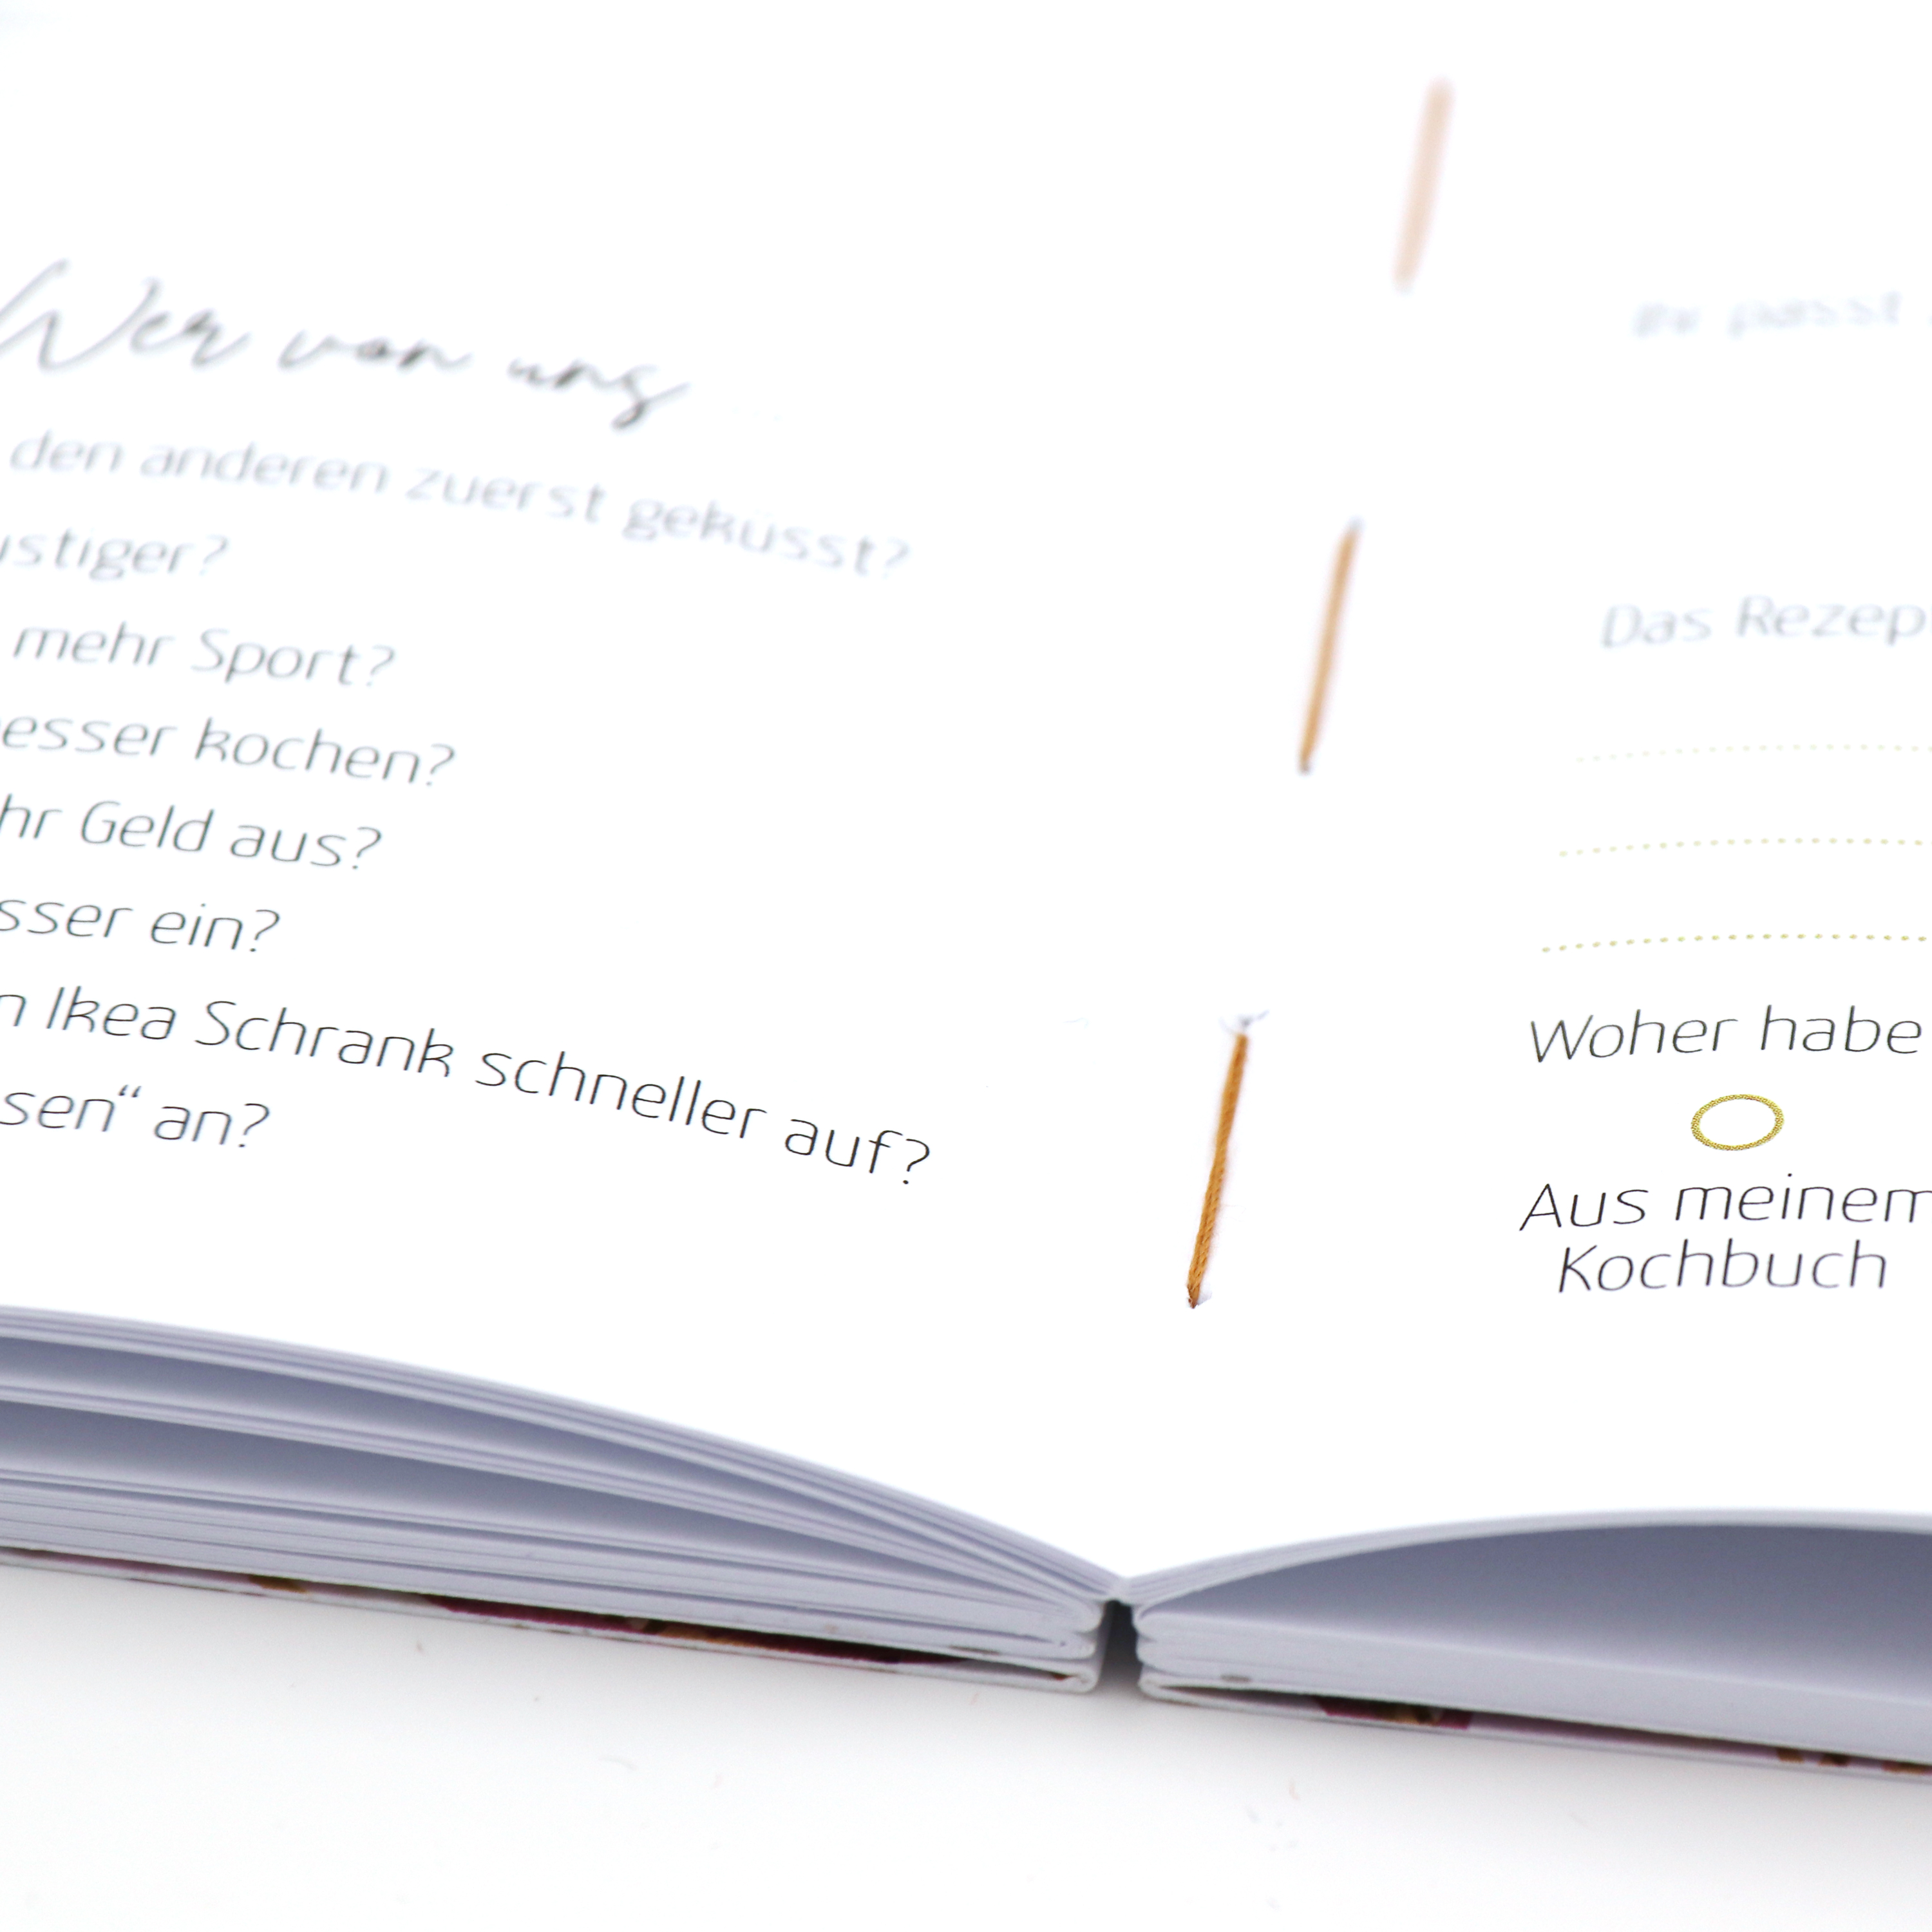 Wer von uns
den anderen zuerst geküsst?
ustiger?
mehr Sport?
esser kochen?
hr Geld aus?
sser ein?
n Ikea Schrank schneller auf?
sen“ an?
passt
Das Rezept
Woher habe
Aus meinem
Kochbuch